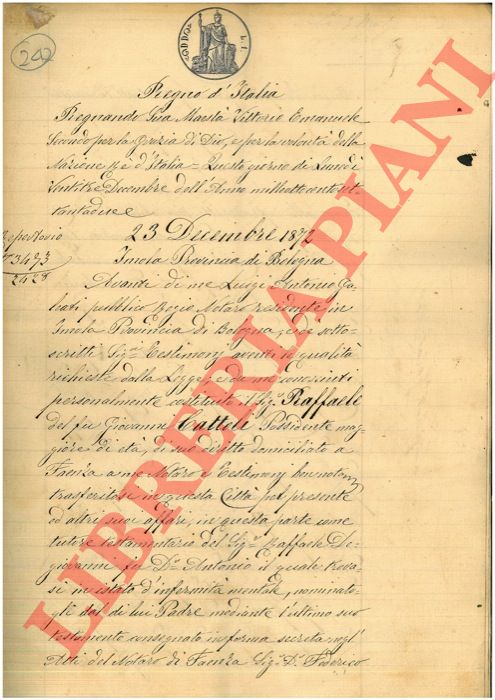 242
Regno d'Italia
Regnando Sua Maestà Vittorio Emanuele
Secondo per la Grazia di Dio, e per la volontà della
Nazione Re d'Italia = Questo giorno di Lunedì
Ventitre Decembre dell'Anno milleottocentoset
tantadue
23 Decembre 1872
Repertorio
Imola Provincia di Bologna
Avanti di me Luigi Antonio Ga-
leati pubblico Regio Notaro residente in
Imola Provincia di Bologna, ed ai sotto-
scritti Sig.ri Testimonj aventi le qualità
richieste dalla Legge, e da me conosciuti
personalmente costituito il Sig. Raffaele
del fu Giovanni Cattoli Possidente mag-
giore di età, di suo diritto domiciliato a
Faenza a me Notaro e Testimonj ben noto
trasferitosi in questa Città pel presente
ed altri suoi affari, in questa parte come
tutore testamentario del Sig. Raffaele De-
giovanni fu D. Antonio il quale trova-
si in istato d'infermità mentale, nominato-
gli dal di lui Padre mediante l'ultimo suo
testamento consegnato in forma secreta negl'
Atti del Notaro di Faenza Sig. D. Federico
LIBRERIA PIANI